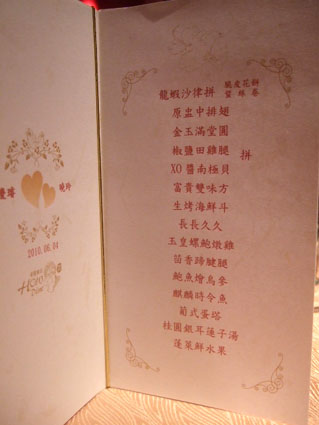 曉玲
2010.06.04
龍蝦沙律拼
原盅中排翅
金玉滿堂圓
椒鹽田雞腿
拼
XO醬南極貝
富貴雙味方
生烤海鮮斗
長長久久
玉皇螺鮑燉雞
笛香蹄腱腿
鮑魚燴烏參
麒麟時令魚
葡式蛋塔
桂圓銀耳蓮子湯
蓬萊鮮水果